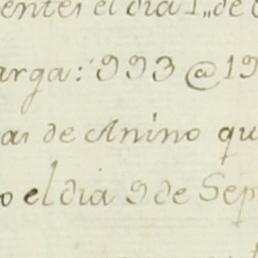 entes el dia 1,, de
arga: 993 @ 19
as de Anino qu
o el dia 9 de Sep